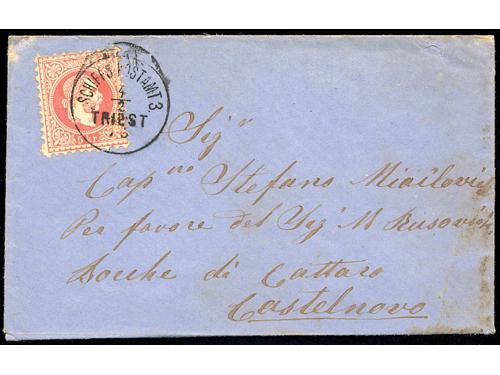 SCHIFFS POSTAMT 3.
4
2
TRIEST
5 kr
Sig.r
Cap.no Stefano Miailovich
Per favore del Sig.r M Rusovich
Bocche di Cattaro
Castelnovo